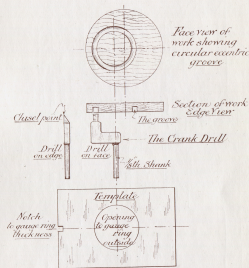 Face view of
work showing
circular eccentric
groove
Section of work
Edge View
The groove
Chisel point
The Crank Drill
Drill
on edge
Drill
on face
Shank
Template
Notch
to gauge ring
thickness
Opening
to gauge
ring
outside